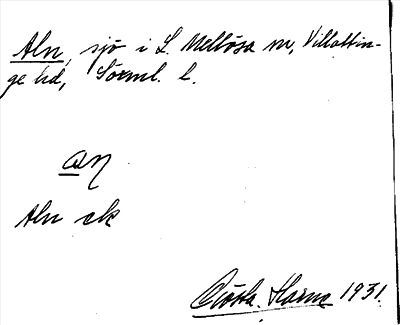 Aln, sjö i L. Mellösa sn, Villåttin-
ge hd, Sörml. l.
aln
Aln ek
Gösta 1931.